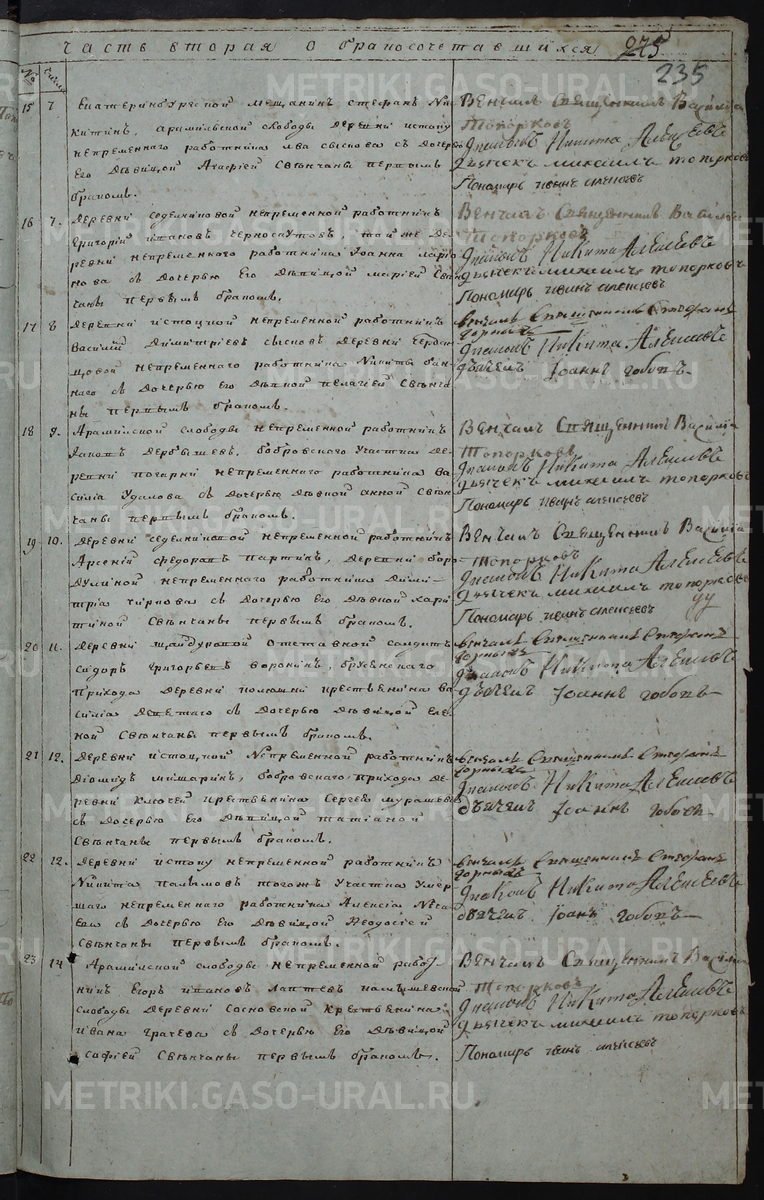 Часть вторая о бракосочетавшихся
275
235
15 7 Екатеринбургской мещанинъ Стефанъ Ни
китинъ, Арамильской слободы деревни Истоку
непременнаго работника сысоева съ дочерью
его девицей Агафiей Свенчаны первымъ
бракомъ.
Венчалъ Священникъ Василiй
Топорковъ
Дiаконъ Никита Алексеевъ
Дьячекъ Михаилъ Топорковъ
Пономарь Иванъ Алексеевъ
16 7. деревни Седельниковой непременной работникъ
Григорiй Ивановъ Черноскутовъ той же де
ревни непременнаго работника Iоанна Ларiо
нова съ дочерью его девицей Марiей Свен
чаны первымъ бракомъ.
Венчалъ Священникъ Василiй
Топорковъ
Дiаконъ Никита Алексеевъ
Дьячекъ Михаилъ Топорковъ
Пономарь Иванъ Алексеевъ
17 8 деревни Истоцкой непременной работникъ
Василiй Димитрiевъ Сысоевъ деревни
непременнаго работника Никиты
наго съ дочерью его девкой Пелагiей Свенча
ны первымъ бракомъ.
венчалъ Священникъ Стефанъ
Дiаконъ Никита Алексеевъ
дьячекъ Iоаннъ
18 9. Арамильской слободы непременной работникъ
Дербышевъ, бобровскаго участка де
ревни непременнаго работника Ва
силiя Удалова съ дочерью девкой Анной Свен
чаны первымъ бракомъ.
Венчалъ Священникъ Василiй
Топорковъ
Дiаконъ Никита Алексеевъ
Дьячекъ Михаилъ Топорковъ
Пономарь Иванъ Алексеевъ
19 10. деревни Седельниковой непременной работникъ
Арсенiй Федоровъ Партинъ, деревни боро
дулиной непременнаго работника Дими
трiя Чиркова съ дочерью его девкой Хари
тиной Свенчаны первымъ бракомъ.
Венчалъ Священникъ Василiй
Топорковъ
Дiаконъ Никита Алексеевъ
Дьячекъ Михаилъ Топорковъ
Пономарь Иванъ Алексеевъ
20 11. деревни Шайдуровой отставной солдатъ
Сидоръ Григорьевъ Воронинъ,
прихода деревни крестьянина Ва
силiя съ дочерью девицей Еле
ной Свенчаны первымъ бракомъ.
венчалъ Священникъ Стефанъ
Дiаконъ Никита Алексеевъ
дьячекъ Iоаннъ
21 12. деревни Истоцкой непременной работникъ
Дiомидъ Мишаринъ, бобровскаго прихода де
ревни Ключей крестьянина Сергея Мурашева
съ дочерью его девицей Татiаной
Свенчаны первымъ бракомъ.
венчалъ Священникъ Стефанъ
Дiаконъ Никита Алексеевъ
дьячекъ Iоаннъ
22 12. деревни Истоку непременной работникъ
Никита Палымовъ тогожъ участка умер
шаго непременнаго работника Алексiя
съ дочерью его девицей Феодосiей
Свенчаны первымъ бракомъ.
венчалъ Священникъ Стефанъ
Дiаконъ Никита Алексеевъ
дьячекъ Iоаннъ
23 14 Арамильской слободы непременной работ
никъ Егоръ Ивановъ Лаптевъ Камышевской
слободы деревни Сосновской крестьянина
Ивана Грачева съ дочерью его девицей
Софiей Свенчаны первымъ бракомъ.
Венчалъ Священникъ Василiй
Топорковъ
Дiаконъ Никита Алексеевъ
Дьячекъ Михаилъ Топорковъ
Пономарь Иванъ Алексеевъ
METRIKI.GASO-URAL.RU